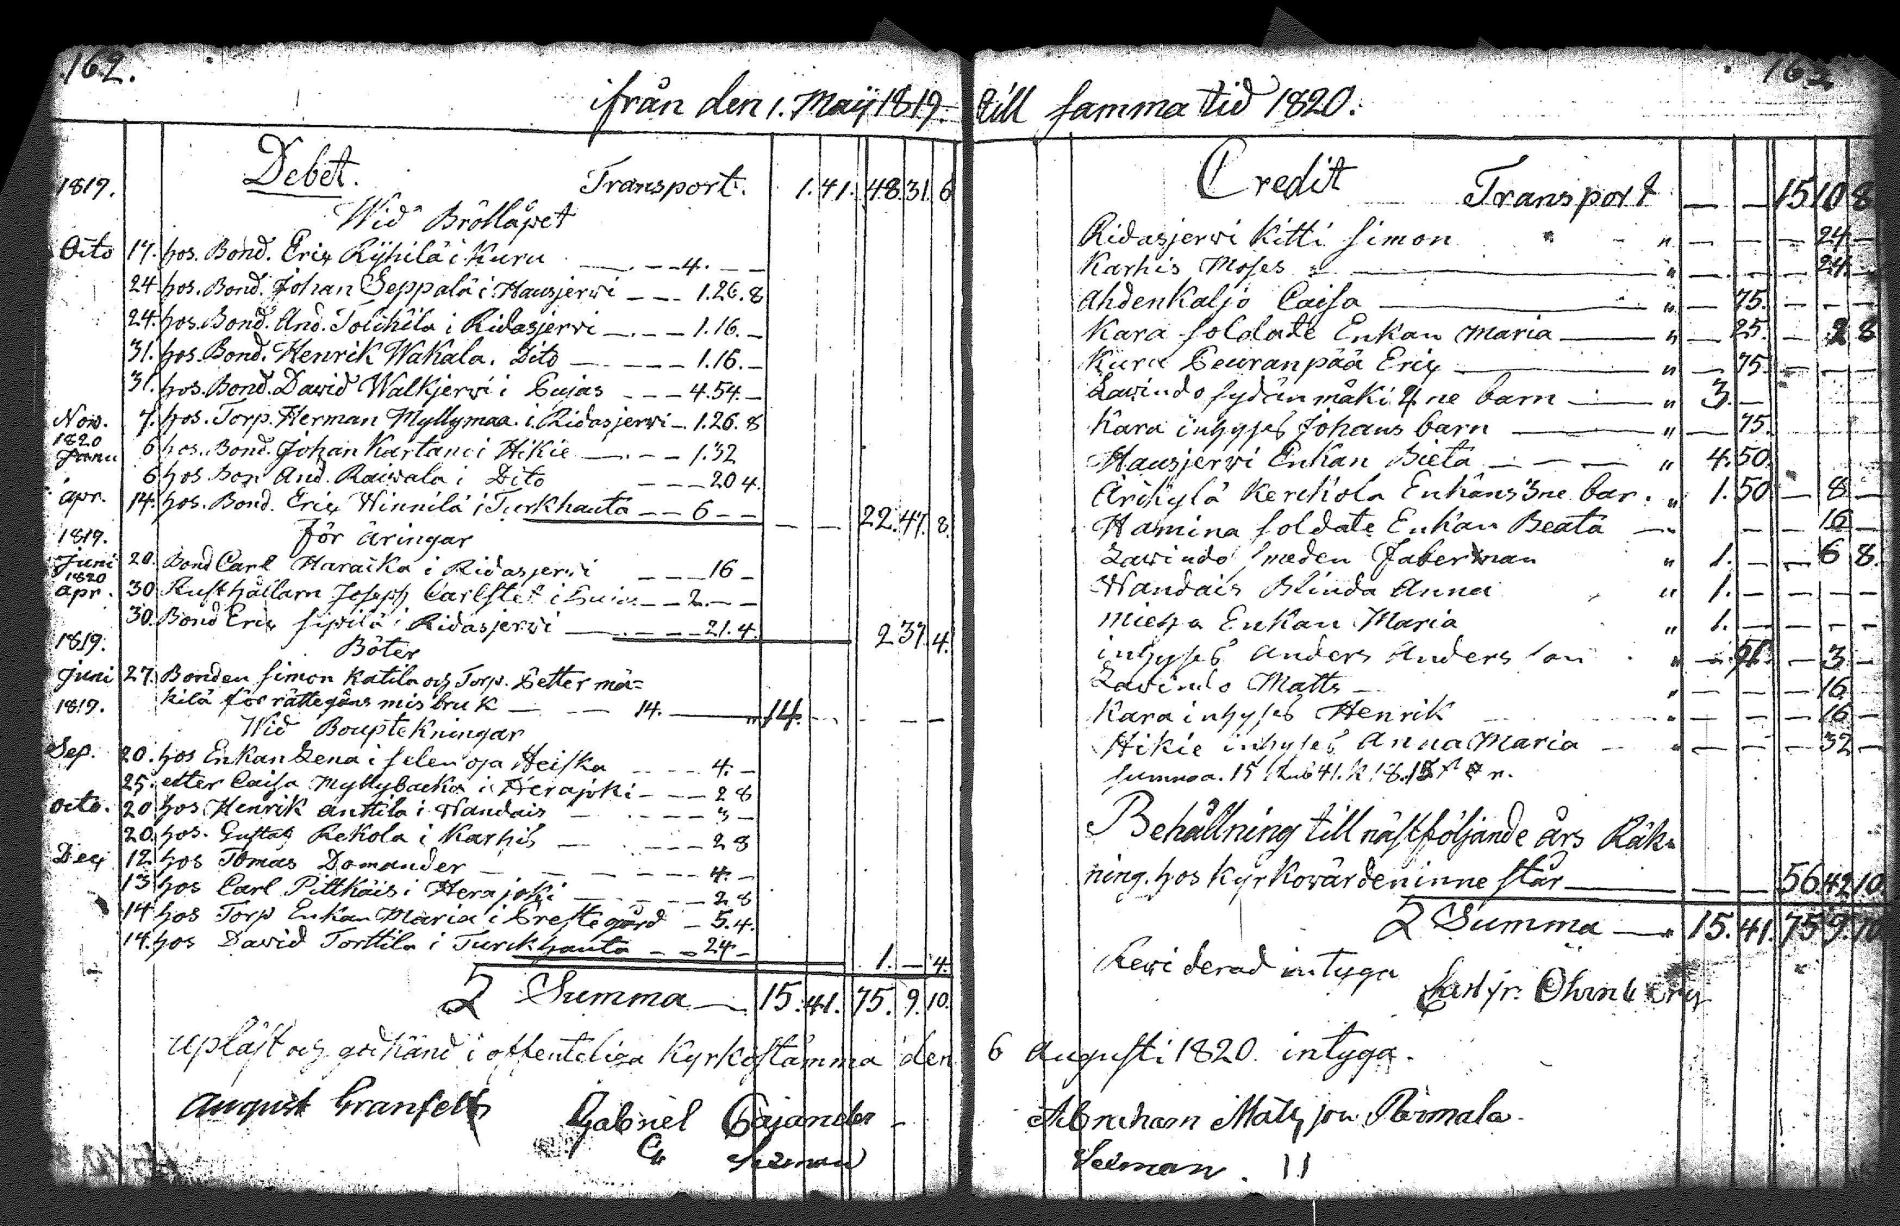 162.
ifrån den 1. Maij 1819.
Debet. Transport. 1. 41. 48. 31. 6
1819.
Wid Bröllåpet
Octo 17. hos. Bond. Erix Ryhilä i Kuru — 4. — —
24 hos. Bond. Johan Seppälä i Hausjerwi — 1. 26. 8
24. hos. Bond. And. Tolkkila i Ridasjerwi — 1. 16. —
31. hos. Bond. Henrik Wakala. Dito — 1. 16. —
31. hos. Bond. David Walkjerwi i — 4. 54. —
Nov. 7. hos. Torp. Herman Myllymaa. i Ridasjerwi — 1. 26. 8
1820
Janu 6 hos. Bond. Johan Kartano i Hikie — 1. 32
6 hos And. Raiwala i Dito — 20 4.
apr. 14. hos. Bond. Erix Winnilä i Turkhauta — 6 — — 22. 47. 8.
för äringar
1819.
Juni 20. Bond Carl Haraika i Ridasjerwi — 16 —
1820
apr. 30 Rusthållarn Joseph Carlstet i — 2. — —
30. Bond Erix Sipilä i Ridasjerwi — 21. 4. 2 37. 4.
1819.
Böter
Juni 27. Bonden Simon Katila och Torp. Petter mä=
kilä för rättegåns misbruk — 14. — 14. — —
1819.
Wid Bouptekningar
Sep. 20. hos Enkan Lena i Selen oja Heiska — 4. —
25. efter Caisa Myllybacka i Herajoki — 2 8
octo. 20 hos Henrik Anttila i Wandais — 3 —
20. hos. Gustaf Rekola i Karhis — 2 8
Dex 12 hos Tomas Domander — 4. —
13 hos Carl Pittkäis i Herajoki — 2 8
14 hos Torp Enkan Maria i Prestegård — 5. 4.
14. hos David Torttila i Turckhauta — 24 — 1. — 4.
2 Summa — 15. 41. 75. 9. 10.
Upläst och godkänd i offenteliga Kyrkostämma den
August Granfelt
Gabriel Cajander
162
till samma tid 1820.
Credit Transport — — 15 10 8
Ridasjerwi Kitti Simon " — — — 24 —
Karhis Moses " — — — 24 —
Ahdenkaljo Caisa " — 75. — — —
Kara soldate Enkan Maria " — 25. — 2 8
Kuru Peuranpää Erix " — 75. — — —
Lawindo sydän mäki 4 ne barn " 3. —
Kara inhyses Johans barn " — 75.
Hausjerwi Enkan Bieta " 4. 50.
Ärikylä Kerckola Enkans 3ne bar. " 1. 50 — 8 —
Hamina soldate Enkan Beata — — — 16 —
Lawindo smeden Faberman " 1. — — 6 8.
Wandais Blinda Anna " 1. — — — —
Enkan Maria " 1. — — — —
inhyses Anders Anders son " — 3 —
Lawindo Matts " — — — 16 —
Kara inhyses Henrik — — — 16 —
Hikie inhyses Anna Maria " — — — 32 —
Summa. 15 Rub 41. k 18.
Behållning till nästföljande års Räk=
ning. hos Kyrkowärden inne står — — — 56 42 10.
2 Summa — " 15. 41. 75 9. 10
Rewiderad intyga
6 Augusti 1820. intyga.
Abraham Mats son